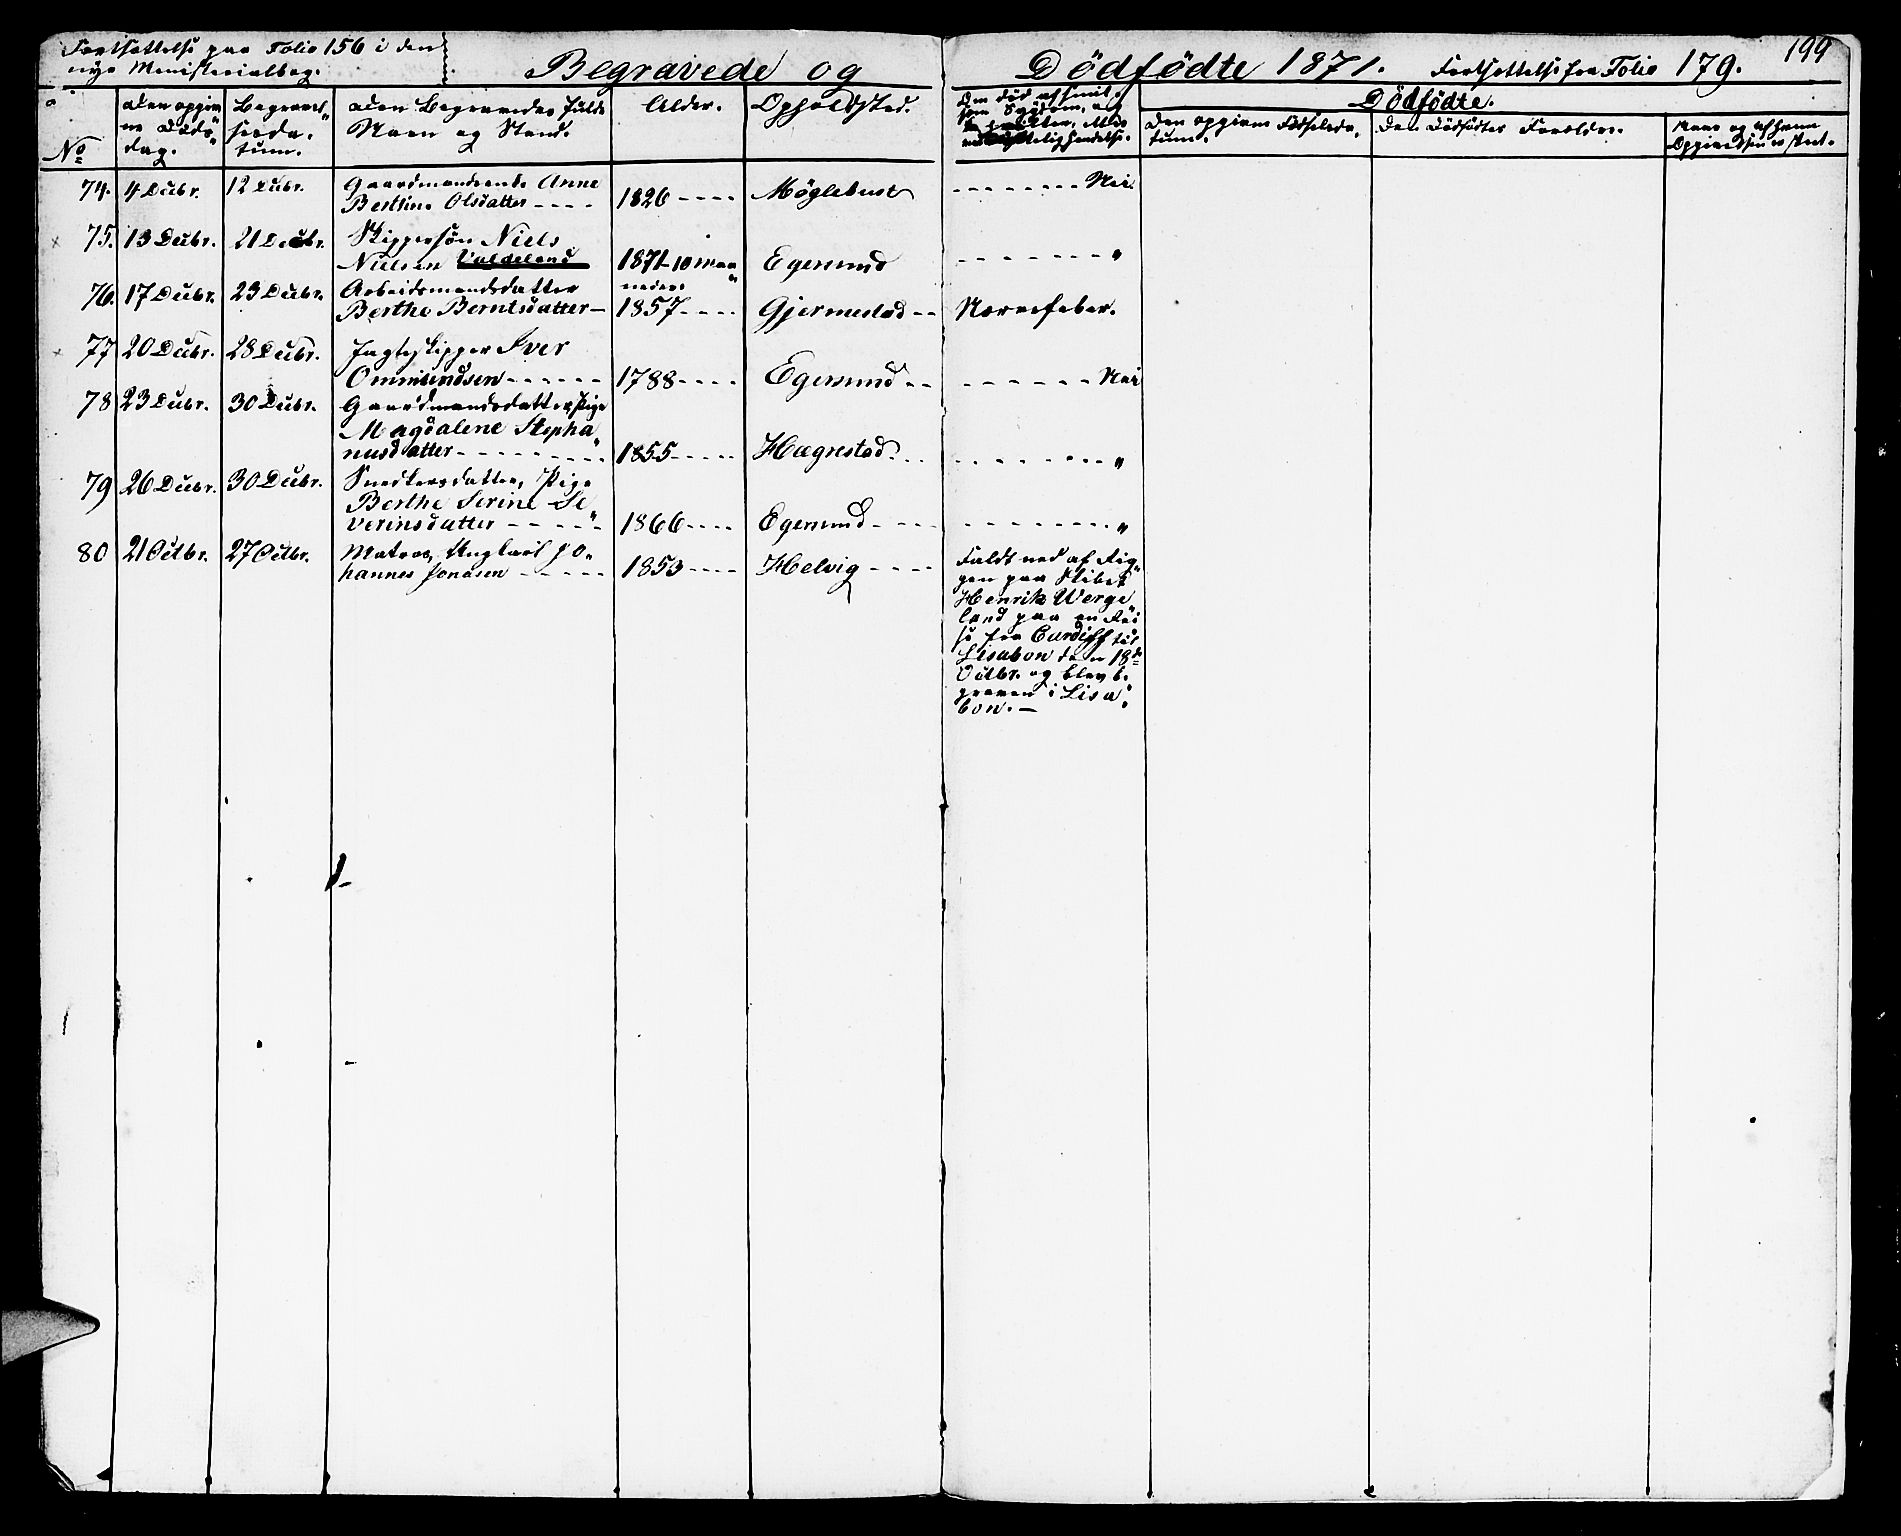 Fortsættelse paa Folio 156 i den
nye Ministerialbog.
Begravede og Dödfödte 1871. Fortsættelse fra Folio 179. 199
No
Den opgiv
ne Döds
dag.
Begravel
sesda
tum.
Den Begravedes fulde
Navn og Stand.
Alder.
Opholdsted.
Om död af smit
som Sygdom, og
ved ulykkelig Hændelse.
Dödfödte.
Den opgivne Födselsda
tum.
Den Dödfödtes Forældre.
Naar og af hvem
Opgivelsen er skeet.
74. 4 Decbr. 12 Decbr. Gaardmandsenke Anne
Berthine Olsdatter - - - - 1826 - - - - Möglebust - - - - - - - Nei
75. 13 Decbr. 21 Decbr. Skippersön Niels
Nielsen Valdeland 1871 - 10 maa
neder. Egersund - - - - - - - "
76. 17 Decbr. 23 Decbr. Arbeidsmandsdatter
Berthe Berntsdatter - 1857 - - - - Gjermestad - - Nervefeber.
77 20 Decbr. 28 Decbr. Jagteskipper Iver
Ommundsen - - - - - - 1788 - - - - Egersund - - - - - - - - Nei
78 23 Decbr. 30 Decbr. Gaardmandsdatter, Pige
Magdalene Stepha
nusdatter - - - - - - - - 1855 - - - - Hægrestad - - - - - - - - - "
79 26 Decbr. 30 Decbr. Snedkersdatter, Pige
Berthe Serine Se
verinsdatter - - - - - 1866 - - - - Egersund - - - - - - - - - - - "
80 21 Octbr. 27 Octbr. Matros, Ungkarl Jo
hannes Jonasen - - - - - 1853 - - - - Helvig - - - -
Faldt ned af Rig
gen paa Skibet
Henrik Werge
land paa en Rei
se fra Cardiff til
Lisabon den 18de
Octbr. og blev be
graven i Lisa
bon. -